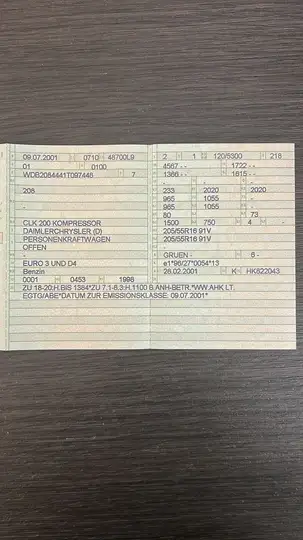 09.07.2001 0710 48700L9
01 0100
WDB2084441T097448 7
208
-
CLK 200 KOMPRESSOR
DAIMLERCHRYSLER (D)
PERSONENKRAFTWAGEN
OFFEN
-
EURO 3 UND D4
Benzin
0001 0453 1998
2 1 120/5300 218
4567 - - 1722 - -
1366 - - 1615 - -
- - -
233 2020 2020
965 1055 -
965 1055 -
80 73
1500 750 4 -
205/55R16 91V
205/55R16 91V
- -
GRUEN - 6 -
e1*98/27*0054*13
28.02.2001 K HK822043
ZU 18-20:H.BIS 1384*ZU 7.1-8.3:H.1100 B.ANH-BETR.*WW.AHK LT.
EGTGABE*DATUM ZUR EMISSIONSKLASSE: 09.07.2001*